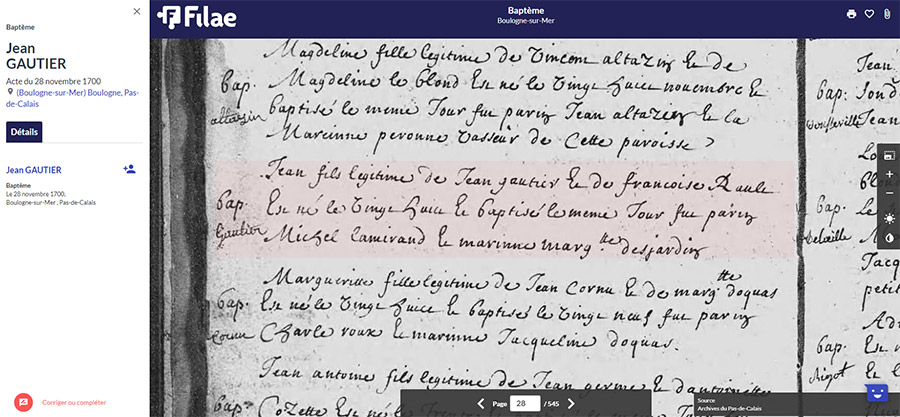 Baptême
Jean
GAUTIER
Acte du 28 novembre 1700
(Boulogne-sur-Mer) Boulogne, Pas-
de-Calais
Détails
Jean GAUTIER
Baptême
Le 28 novembre 1700,
Boulogne-sur-Mer, Pas-de-Calais
Corriger ou compléter
Filae
Baptême
Boulogne-sur-Mer
Magdeline fille legitime de Vincent altazin et de
bap. Magdeline le blond Est né le Vingt huict novembre et
altazin baptisé le meme Jour fut parin Jean altazin et la
Mareinne peronne Vasseur de Cette paroisse
Jean fils legitime de Jean gautier et de francoise Raule
bap. Est né le Vingt huict et baptisé le meme Jour fut parin
Gautier Michel lamirand et marinne marg.tte desjardin
Margueritte fille legitime de Jean Cornu et de marg.tte doquas
bap. Est né le Vingt huict et baptisé le Vingt neuf fut parin
Cornu Charle roux et marinne Jacqueline doquas.
Jean antoine fils legitime de Jean germe et dantoinette
bap. Cozette Est né le
Jean
bap.
Jean
bap.
Jacq
petit
bap.
Page 28 / 545
Source
Archives du Pas-de-Calais